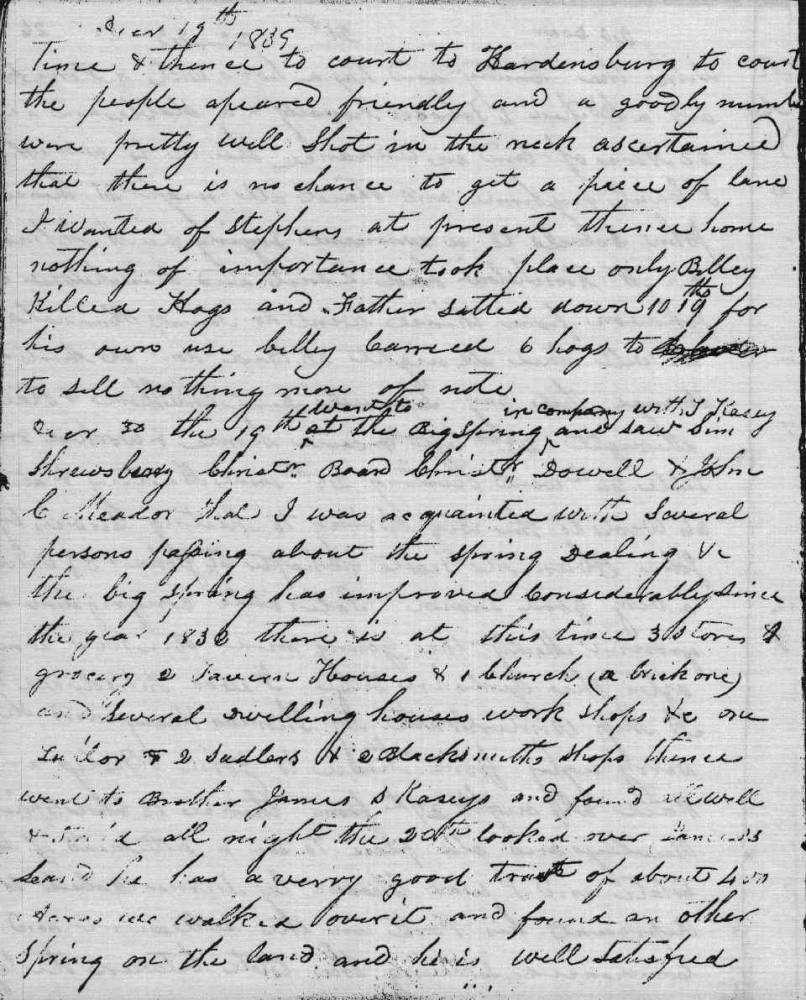 19th 1839
Time & thence to court to Hardensburg to court
the people apeared friendly and a goodly numbe
were pretty well Shot in the neck ascertained
that there is no chance to get a piece of land
I wanted of Stephens at present thence home
nothing of importance took place only Billey
Killed Hogs and Father salted down 10 19th for
his own use billey Carreed 6 hogs to
to sell nothing more of note
the 19th went to the Big Spring in company with J Kasey and saw Sim
Shrewsbery Christr. Board Christr. Dowell & John
C Meador that I was acquainted with Several
persons passing about the Spring Dealing &c
the big Spring has improved Considerably Since
the year 1832 there is at this time 3 Stores &
grocery 2 Tavern Houses & 1 Church (a brick one)
and Several Dwelling houses work shops &c one
Tailor & 2 Sadlers & 2 Blacksmiths Shops thence
went to Brother James S Kaseys and found all well
& all night the 20th looked over James's
Land he has a verry good tract of about 400
Acres we walked over it and found an other
Spring on the land and he is well Satisfied